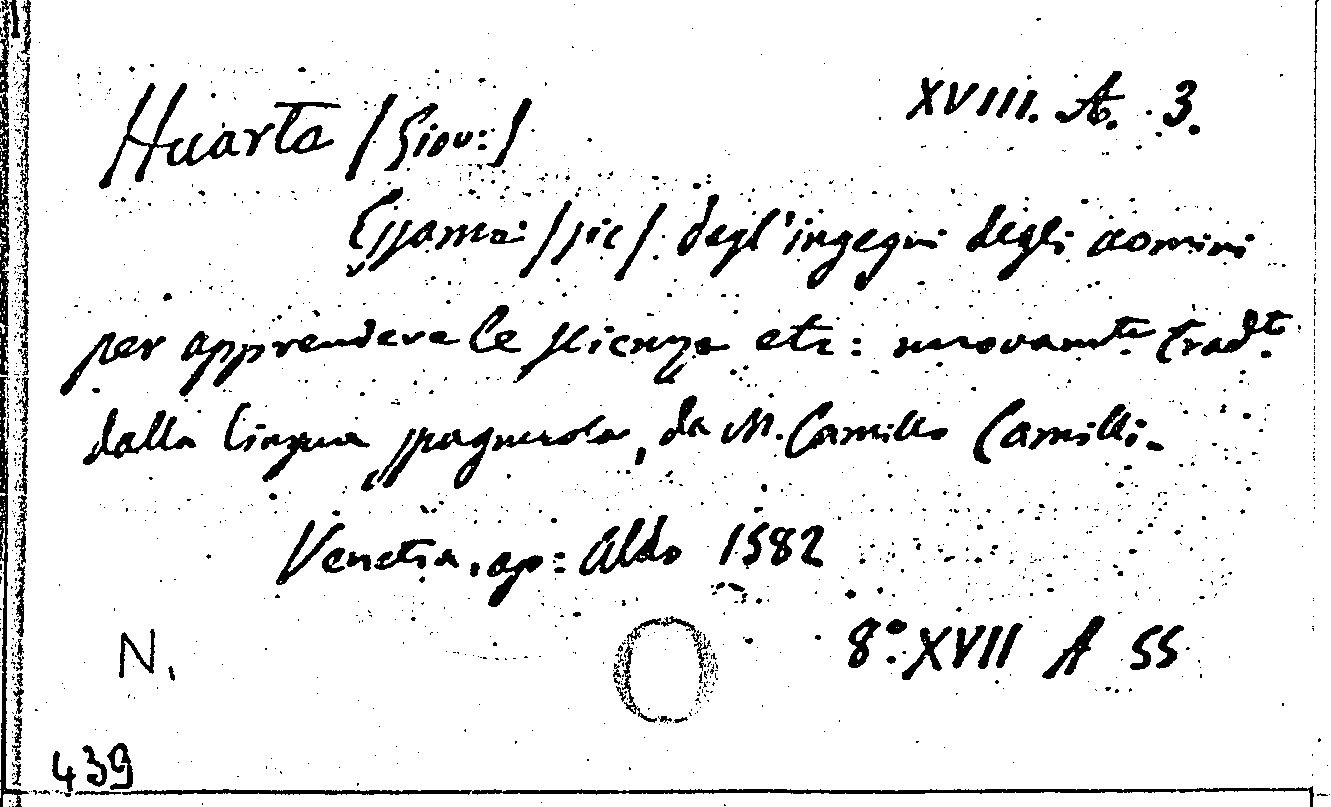 XVIII. A. 3.
Huarte /Giov:/
Essame: /sic/ degl'ingegni degli uomini
per apprendere le scienze etc: nuovamte. tradte.
dalla lingua spagnuola, da M. Camillo Camilli.
Venetia, ap: Aldo 1582
8.º XVII A 55
N.
439